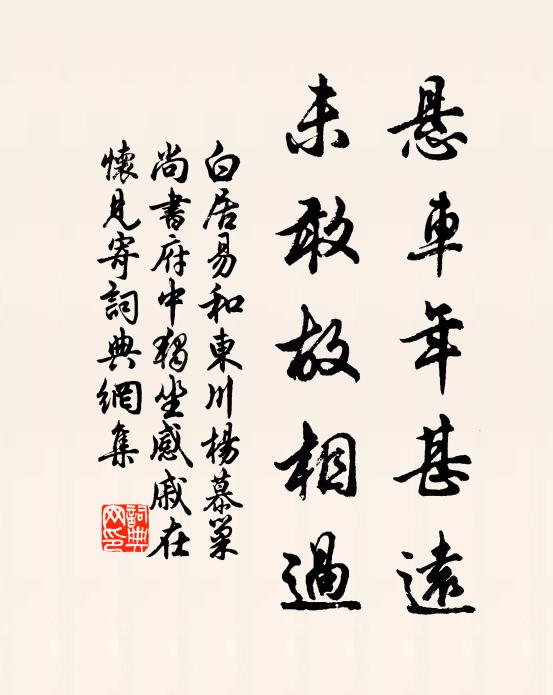 悬車年甚遠
未敢故相過
白居易和東川楊慕巢
尚書府中獨坐感戚在
懷見寄詞典網集
詞典
网印